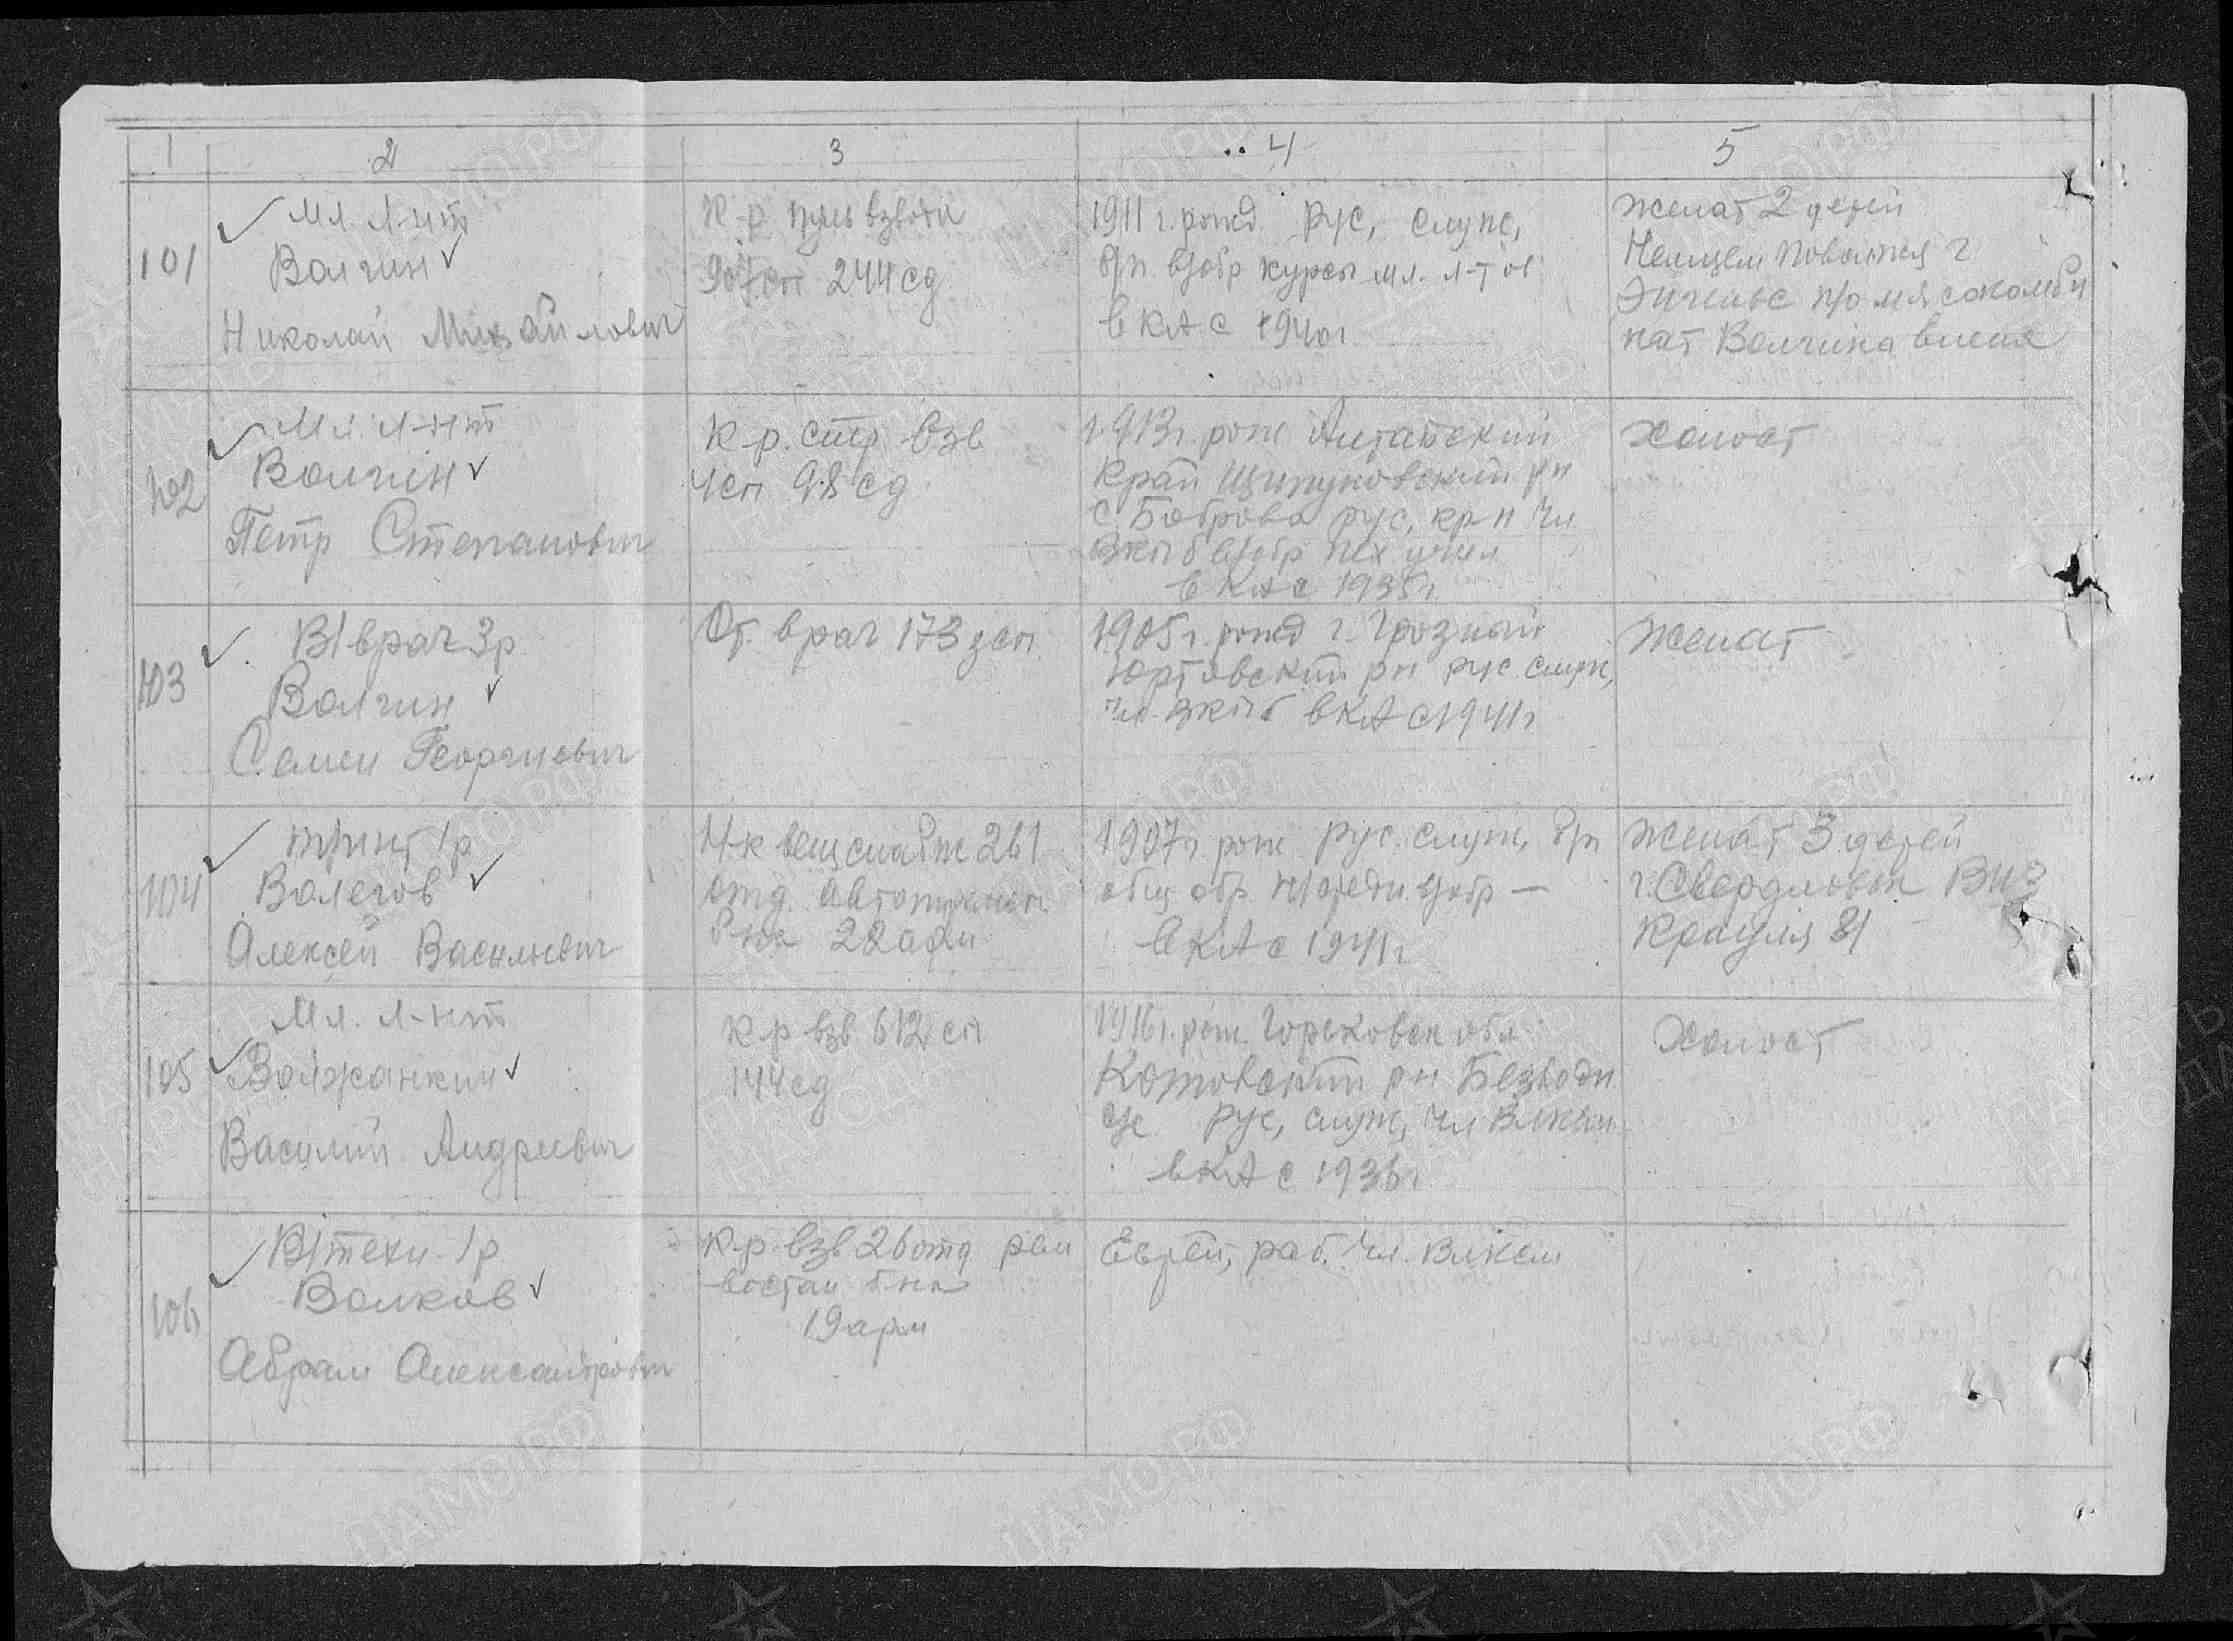 1 2 3 4 5
101
Мл. л-нт
Волгин
Николай Михайлович
К-р пуль взвода
907сп 244 сд
1911 г. рожд рус, служ,
б/п в/обр курсы мл. л-тов
в КА с 1940г
женат 2 детей
Немцев Поволжья г
Энгельс п/о мясокомби
нат Волгина
102
Мл. л-нт
Волгин
Петр Степанович
К-р. стр. взв
4сп 98 сд
1913г. рож Алтайский
край Шипуновский р-н
с. Боброво рус, кр-н чл
ВКПб в/обр пех учил
в КА с 1935г
холост
103
В/врач 3р
Волгин
Семен Георгиевич
Ст. врач 173 зсп
1905г. рожд г. Грозный
рн рус служ,
чл. ВКПб в КА с 1941г
женат
104
т/инт 1р
Волегов
Алексей Васильевич
Н-к вещснабж 261
отд. автотрансп.
б-на 28 арм
1907г. рож рус. служ, б/п
общ обр н/средн в/обр —
в КА с 1941г
женат 3 детей
г. Свердловск ВИЗ
Крауля 81
105
Мл. л-нт
Волжанкин
Василий Андреевич
к-р взв 612 сп
144 сд
1916г. рож. Горьковск обл
Котовский рн Безводн
рус, служ, чл ВЛКСМ
в КА с 1936г
Холост
106
В/техн 1р
Волков
Абрам Александрович
К-р взв 26 отд рем
восстан б-на
19 арм
Еврей, раб. чл. ВЛКСМ